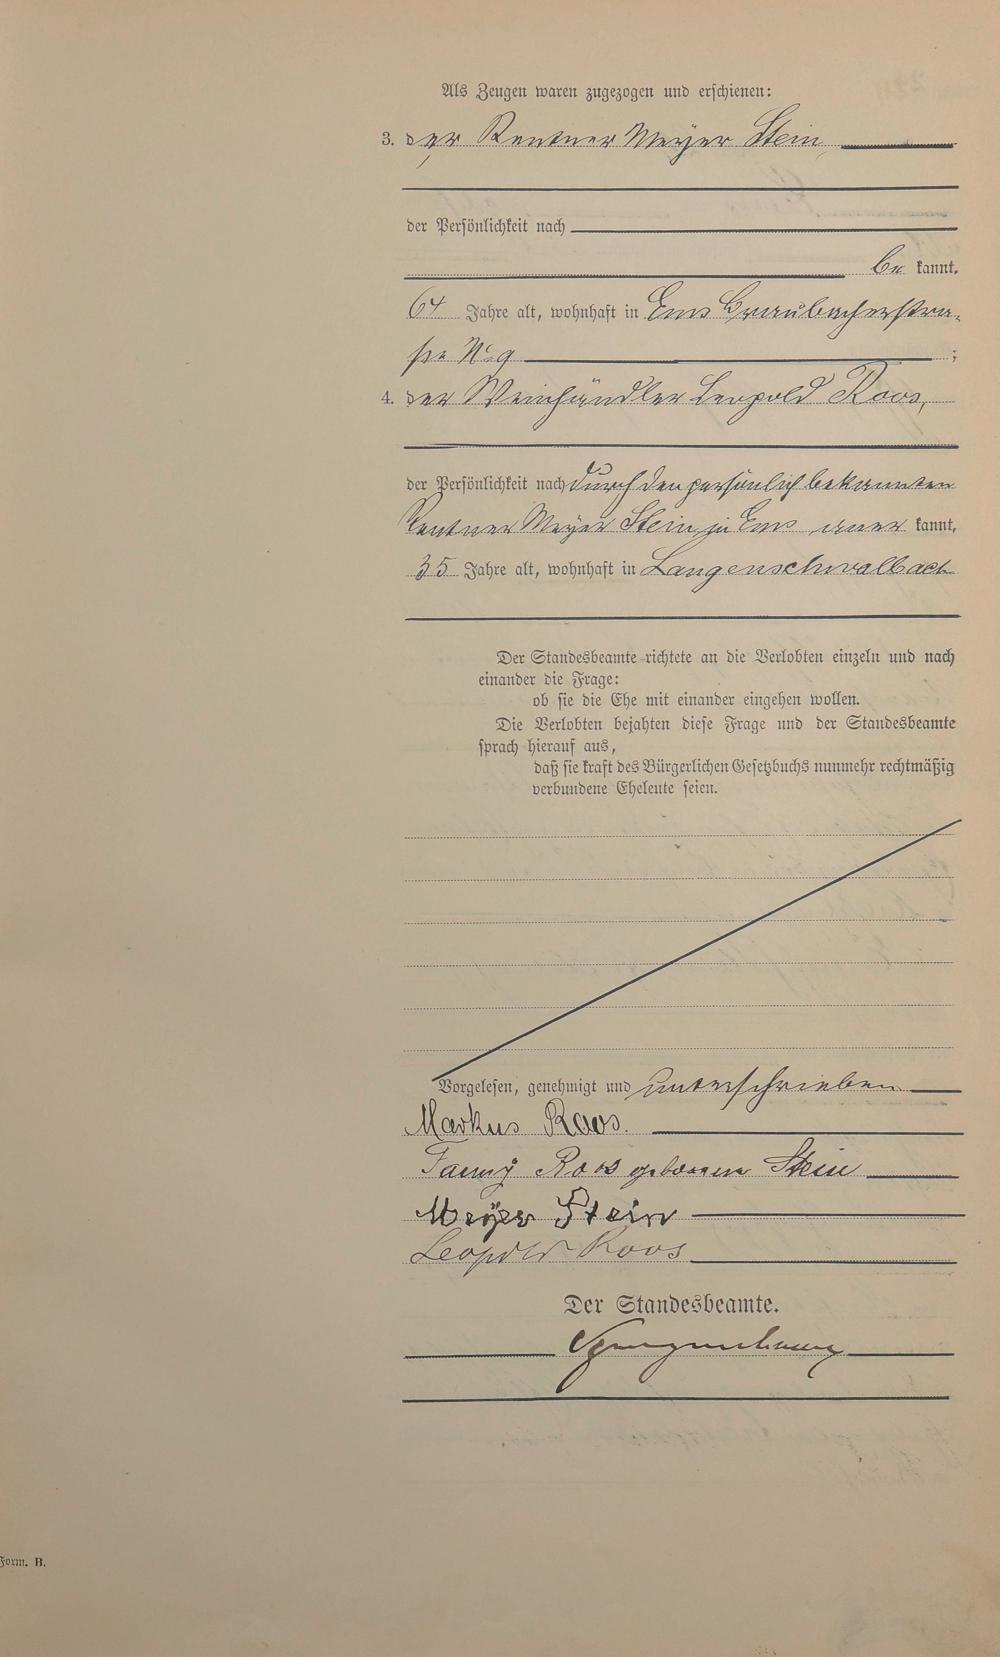 Als Zeugen waren zugezogen und erschienen:
3. der Rentner Meyer Stein
der Persönlichkeit nach
be kannt.
64 Jahre alt, wohnhaft in Ems Braubacherstra-
ße No 9 ;
4. der Weinhändler Leopold Roos,
der Persönlichkeit nach durch den persönlich bekannten
Rentner Meyer Stein zu Ems aner kannt,
35 Jahre alt, wohnhaft in Langenschwalbach
Der Standesbeamte richtete an die Verlobten einzeln und nach
einander die Frage:
ob sie die Ehe mit einander eingehen wollen.
Die Verlobten bejahten diese Frage und der Standesbeamte
sprach hierauf aus,
daß sie kraft des Bürgerlichen Gesetzbuchs nunmehr rechtmäßig
verbundene Eheleute seien.
Vorgelesen, genehmigt und unterschrieben
Markus Roos.
Fanny Roos geborene Stein
Meyer Stein
Leopold Roos
Der Standesbeamte.
Form. B.